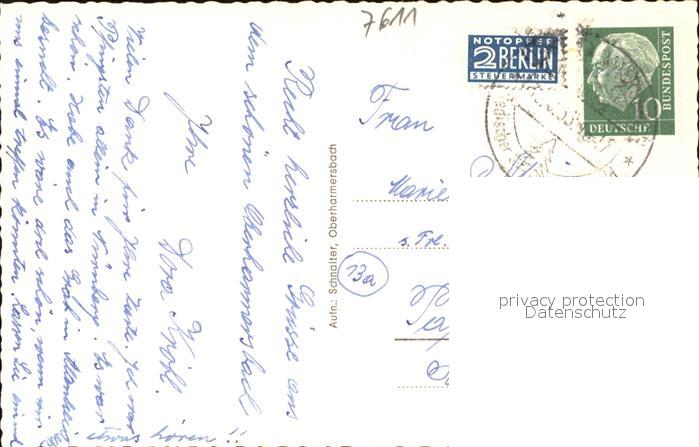 7611
NOTOPFER
2 BERLIN
STEUERMARKE
DEUTSCHE BUNDESPOST
10
Frau
Marie
s. Frl.
13a
privacy protection
Datenschutz
Aufn.: Schnaiter, Oberharmersbach
Recht herzliche Grüsse aus
dem schönen Oberharmersbach
Ihre
Dora Kröll.
Vielen Dank für Ihre Karte. Ich war
Pfingsten allein in Nürnberg. Es war
schön. Habe auch das Grab in
bemalt. Es wäre doch schön, wenn wir
uns einmal treffen könnten. Lassen Sie einmal
etwas hören!!